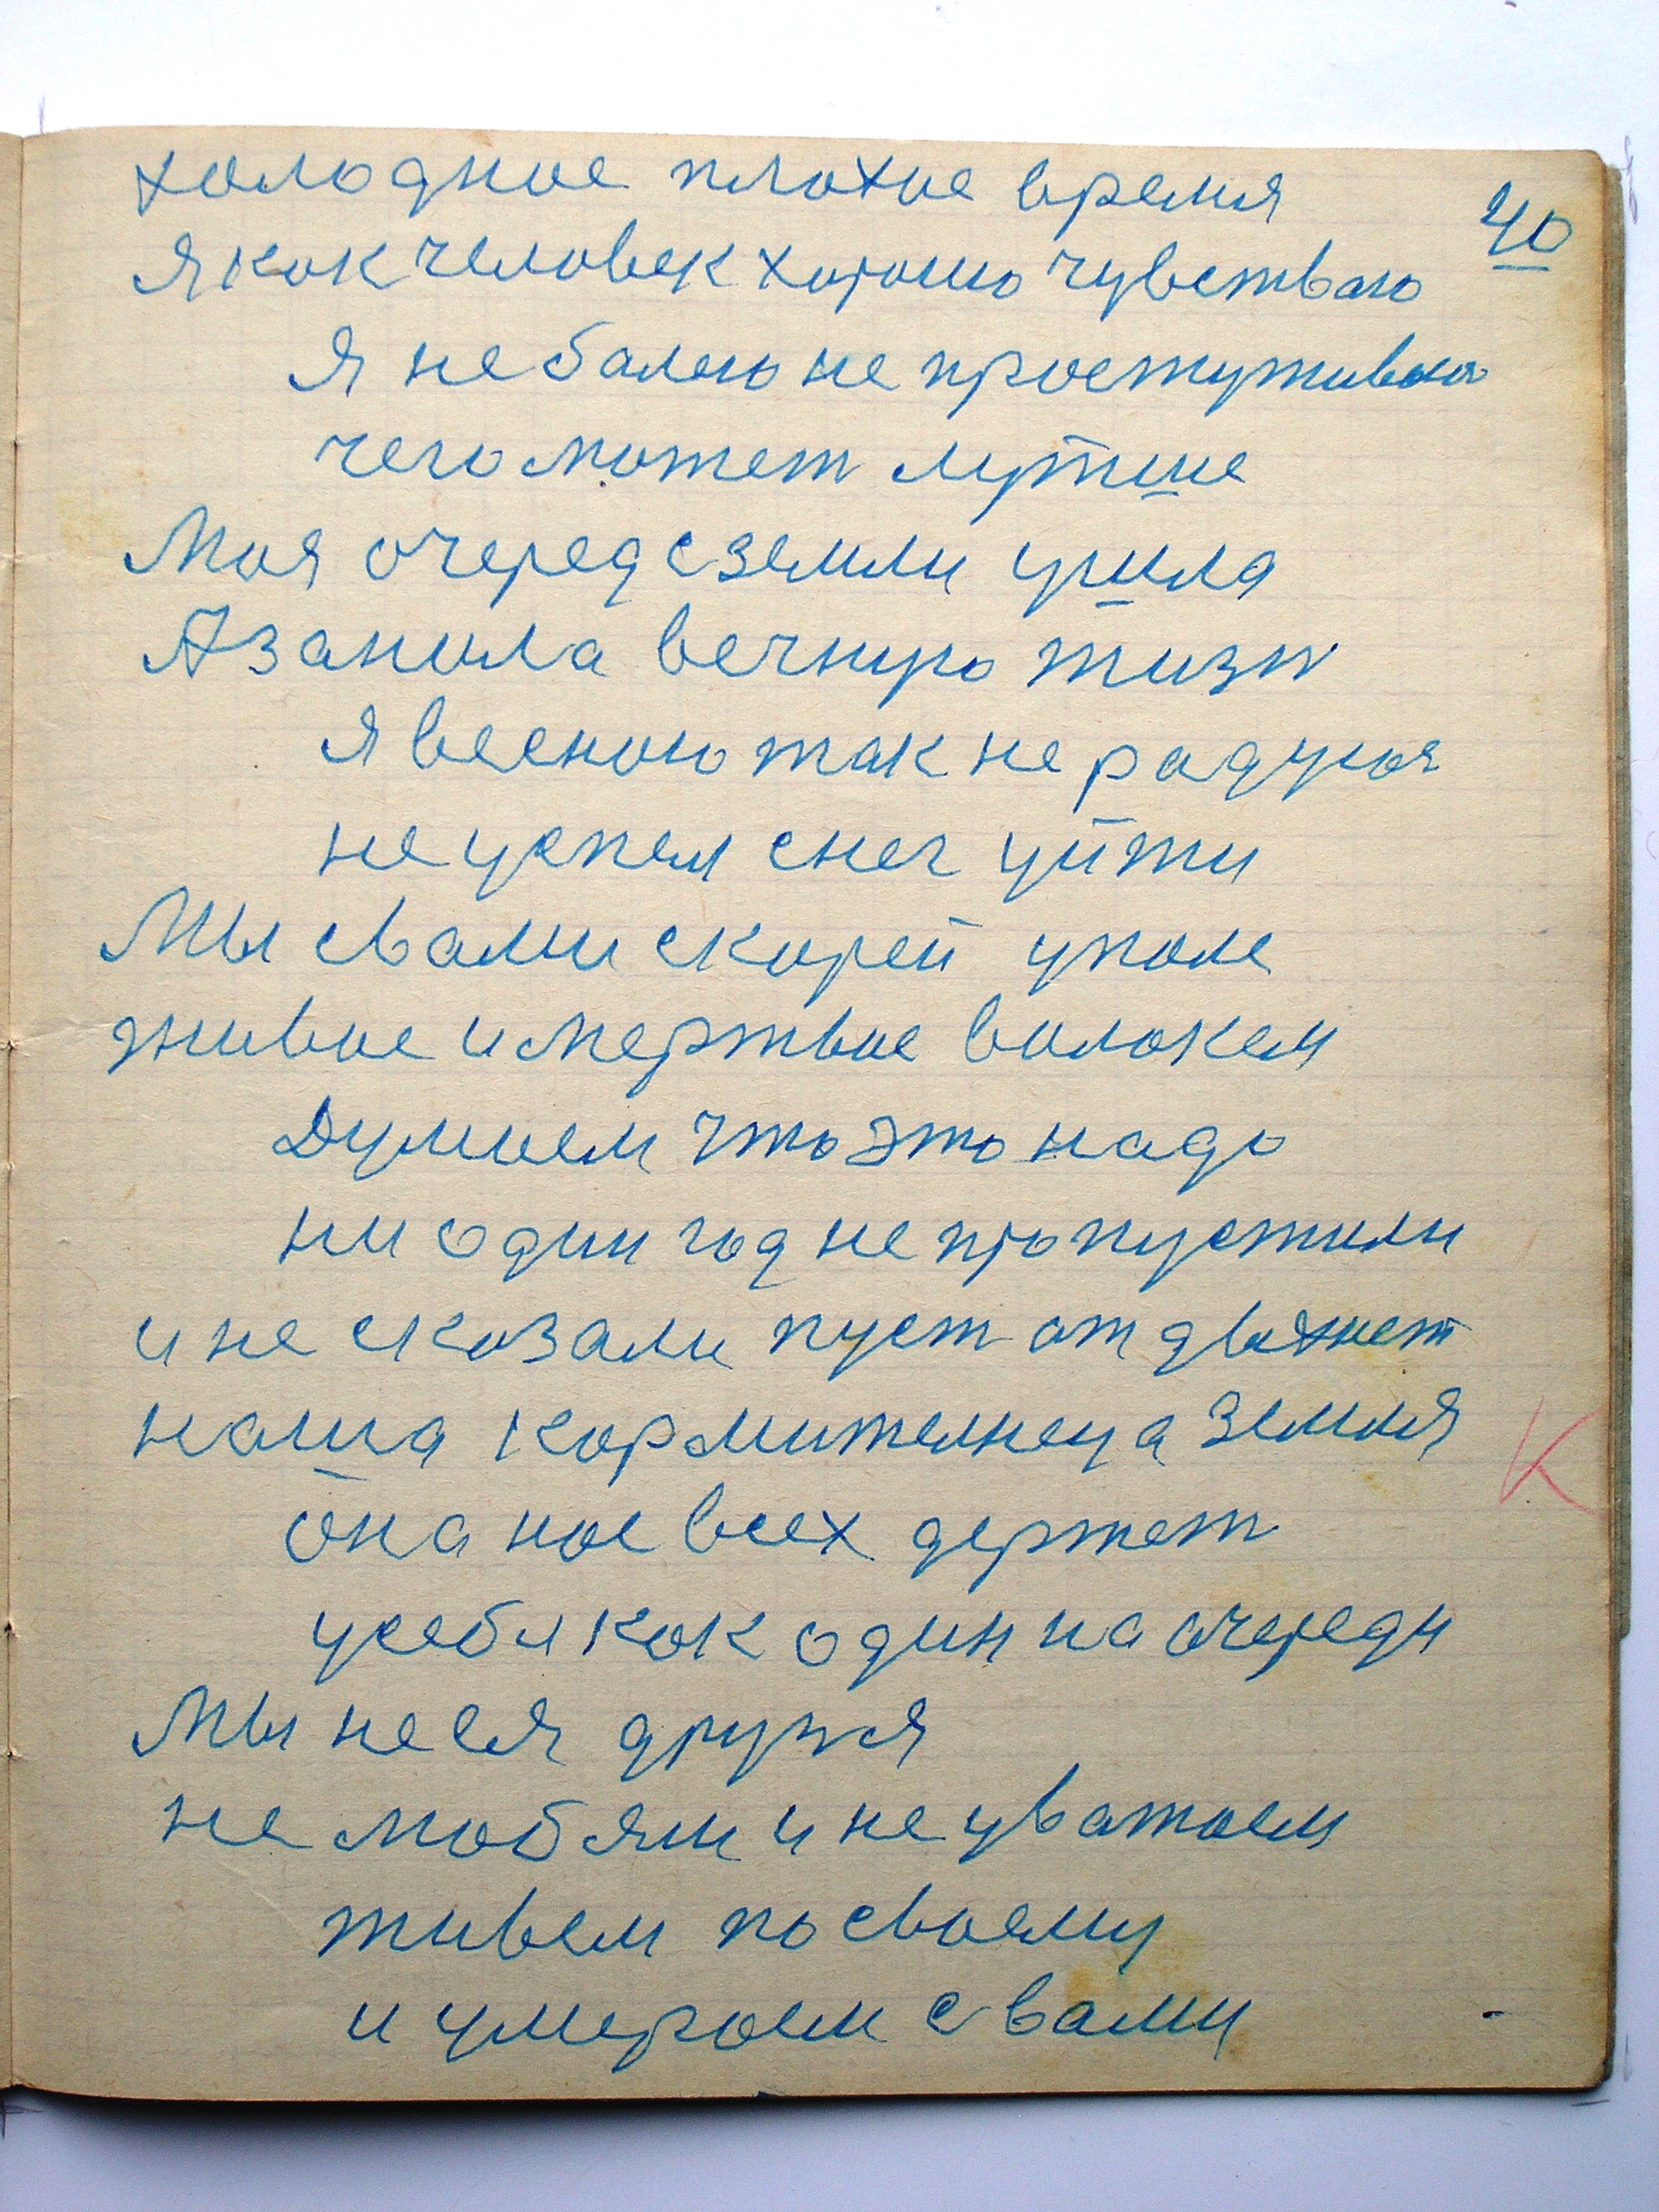 холодное плохое время
40
Я как человек хорошо чувствваю
Я не балею не простуживоюя
чегоможет лутше
Моя очеред с земли ушла
А заняла вечную жизн
я весною так не радуюя
не успел снег уйти
Мы с вами скорей уполе
живое и мертвое волокем
Думаем что это надо
ни один год не пропустили
и не сказали пуст отдвхнет
наша кормителнеца земля
К
она нас всех держет
усебя как один на очереди
Мы нея друзя
не любям и не уважаем
живем по своему
и умераем с вами